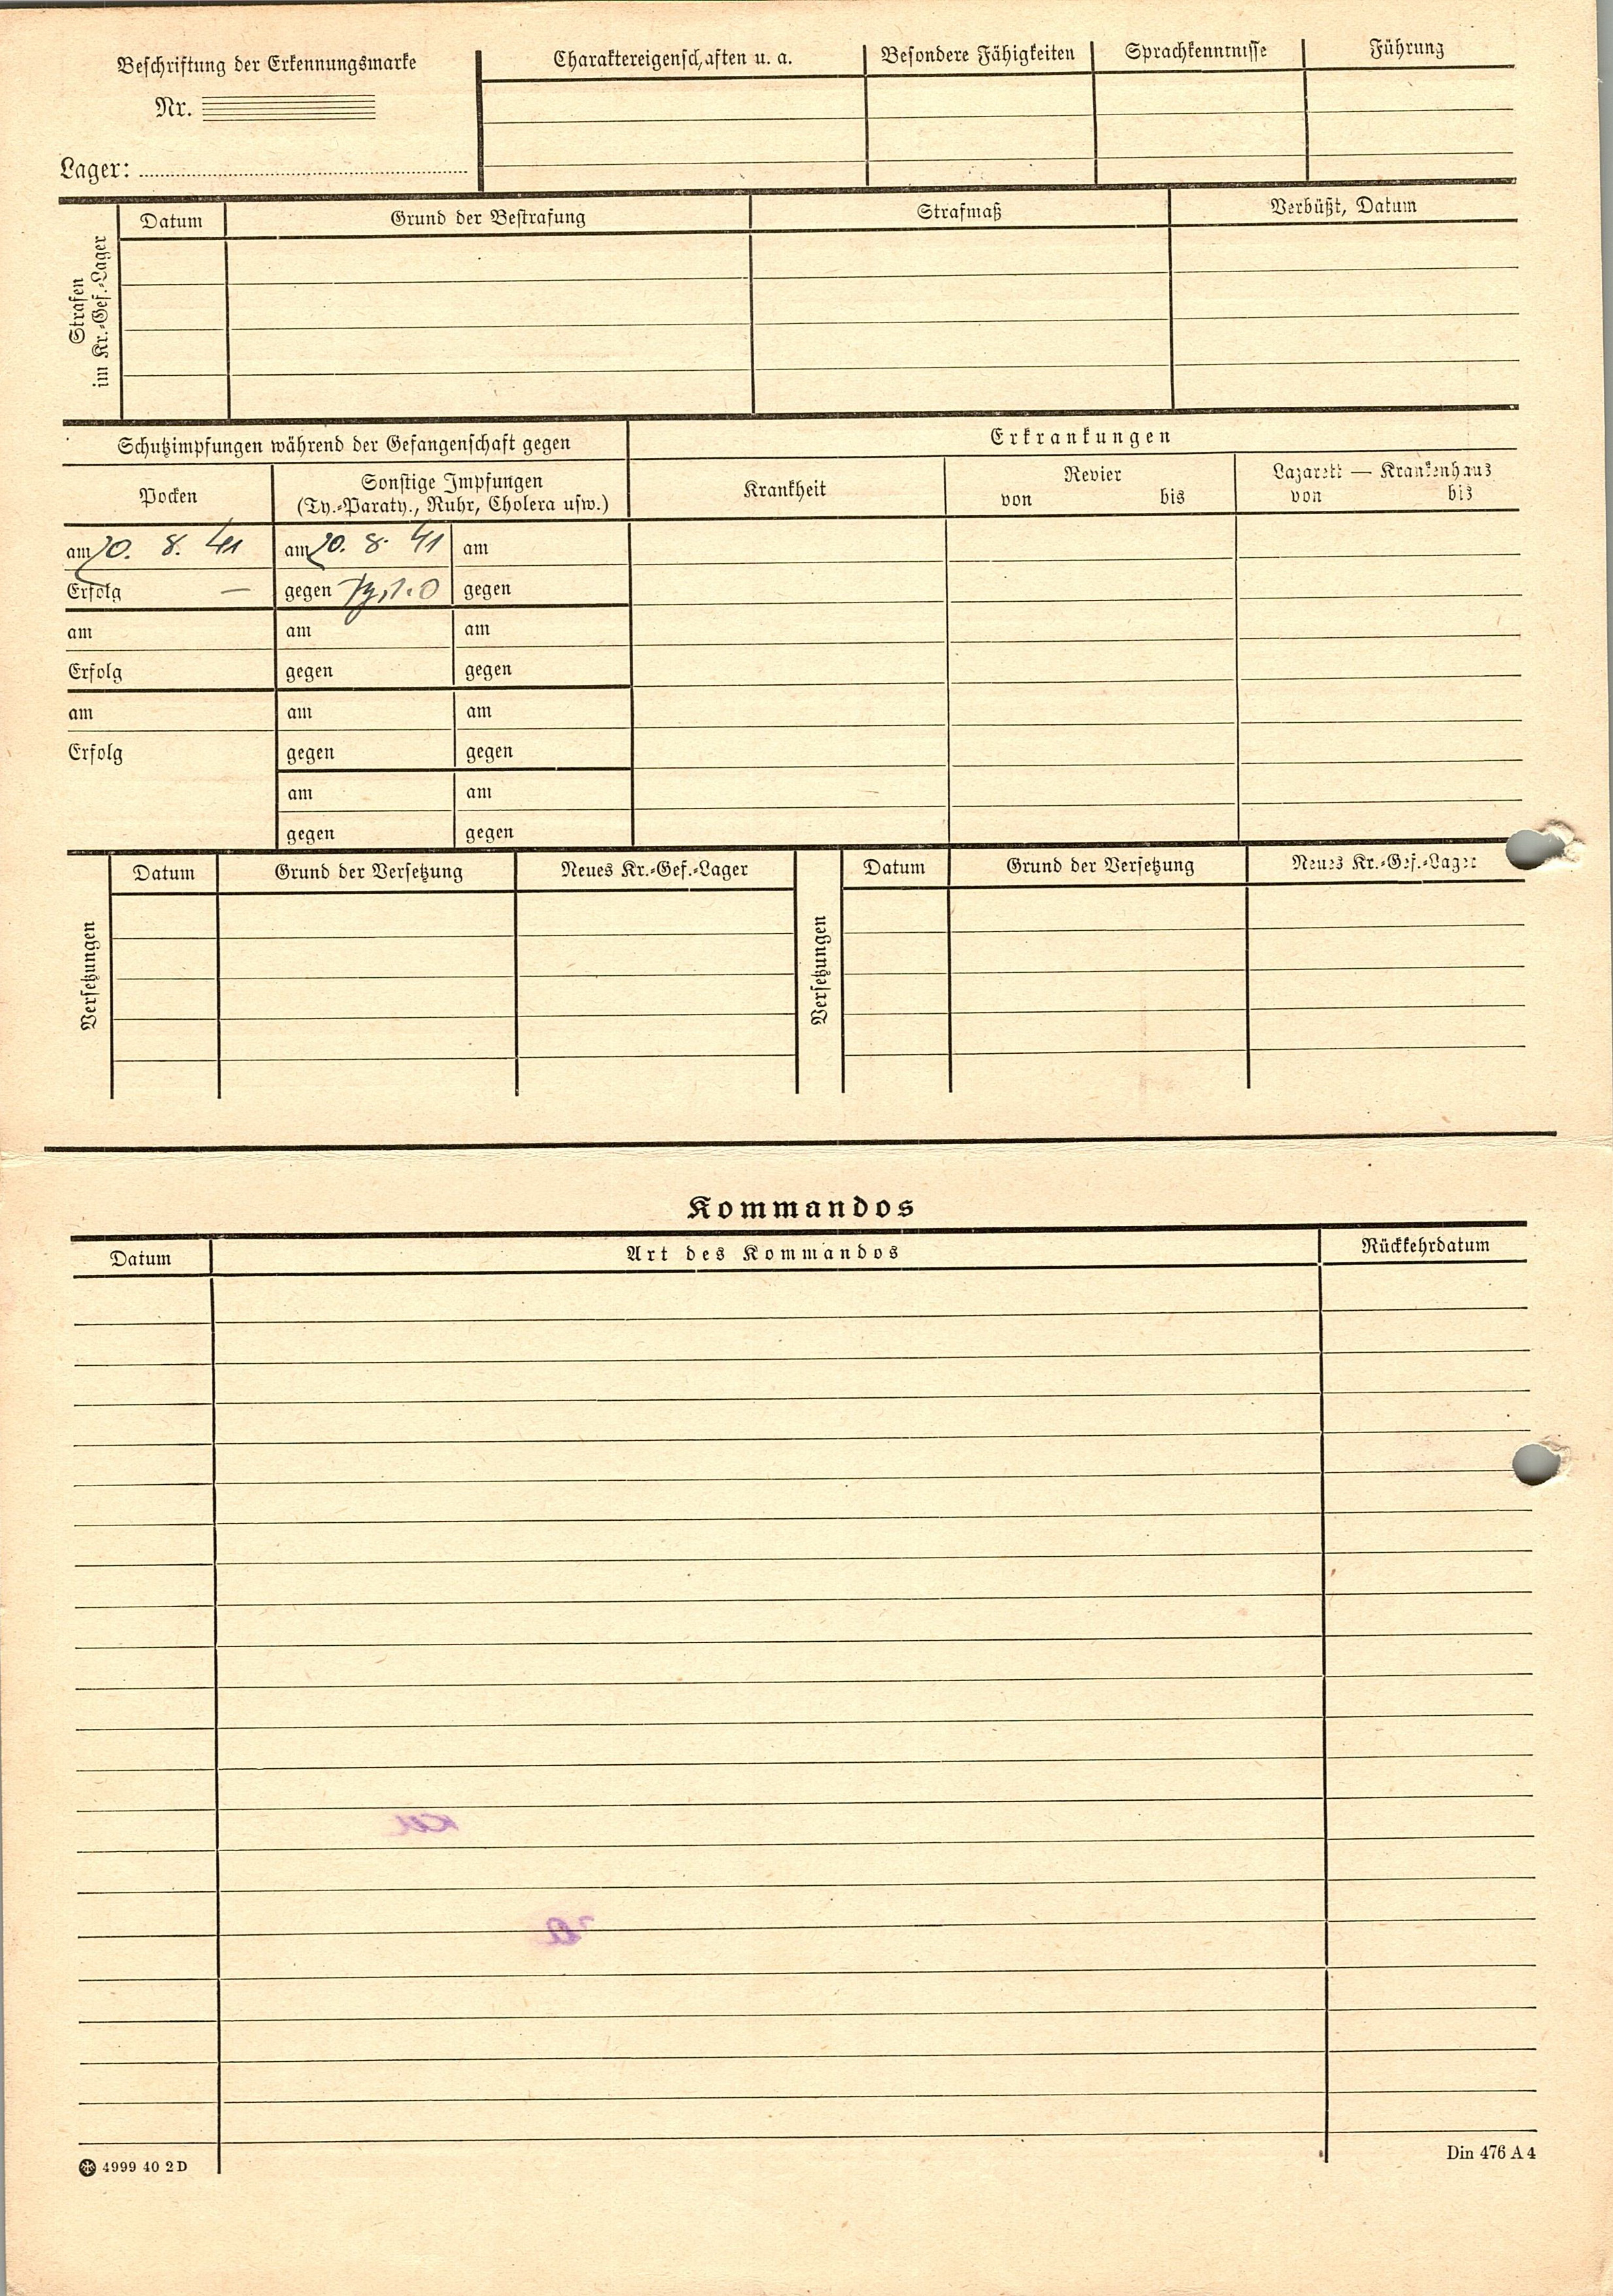 Beschriftung der Erkennungsmarke
Nr.
Lager:
Charaktereigenschaften u. a.
Besondere Fähigkeiten
Sprachkenntnisse
Führung
Strafen
im Kr.-Gef.-Lager
Datum
Grund der Bestrafung
Strafmaß
Verbüßt, Datum
Schutzimpfungen während der Gefangenschaft gegen
Erkrankungen
Pocken
Sonstige Impfungen
(Ty.-Paraty., Ruhr, Cholera usw.)
Krankheit
Revier
von bis
Lazarett — Krankenhaus
von bis
am 20. 8. 41 am 20. 8. 41 am
Erfolg — gegen gegen
am am am
Erfolg gegen gegen
am am am
Erfolg gegen gegen
am am
gegen gegen
Versetzungen
Datum
Grund der Versetzung
Neues Kr.-Gef.-Lager
Versetzungen
Datum
Grund der Versetzung
Neues Kr.-Gef.-Lager
Kommandos
Datum
Art des Kommandos
Rückkehrdatum
4999 40 2 D
Din 476 A 4